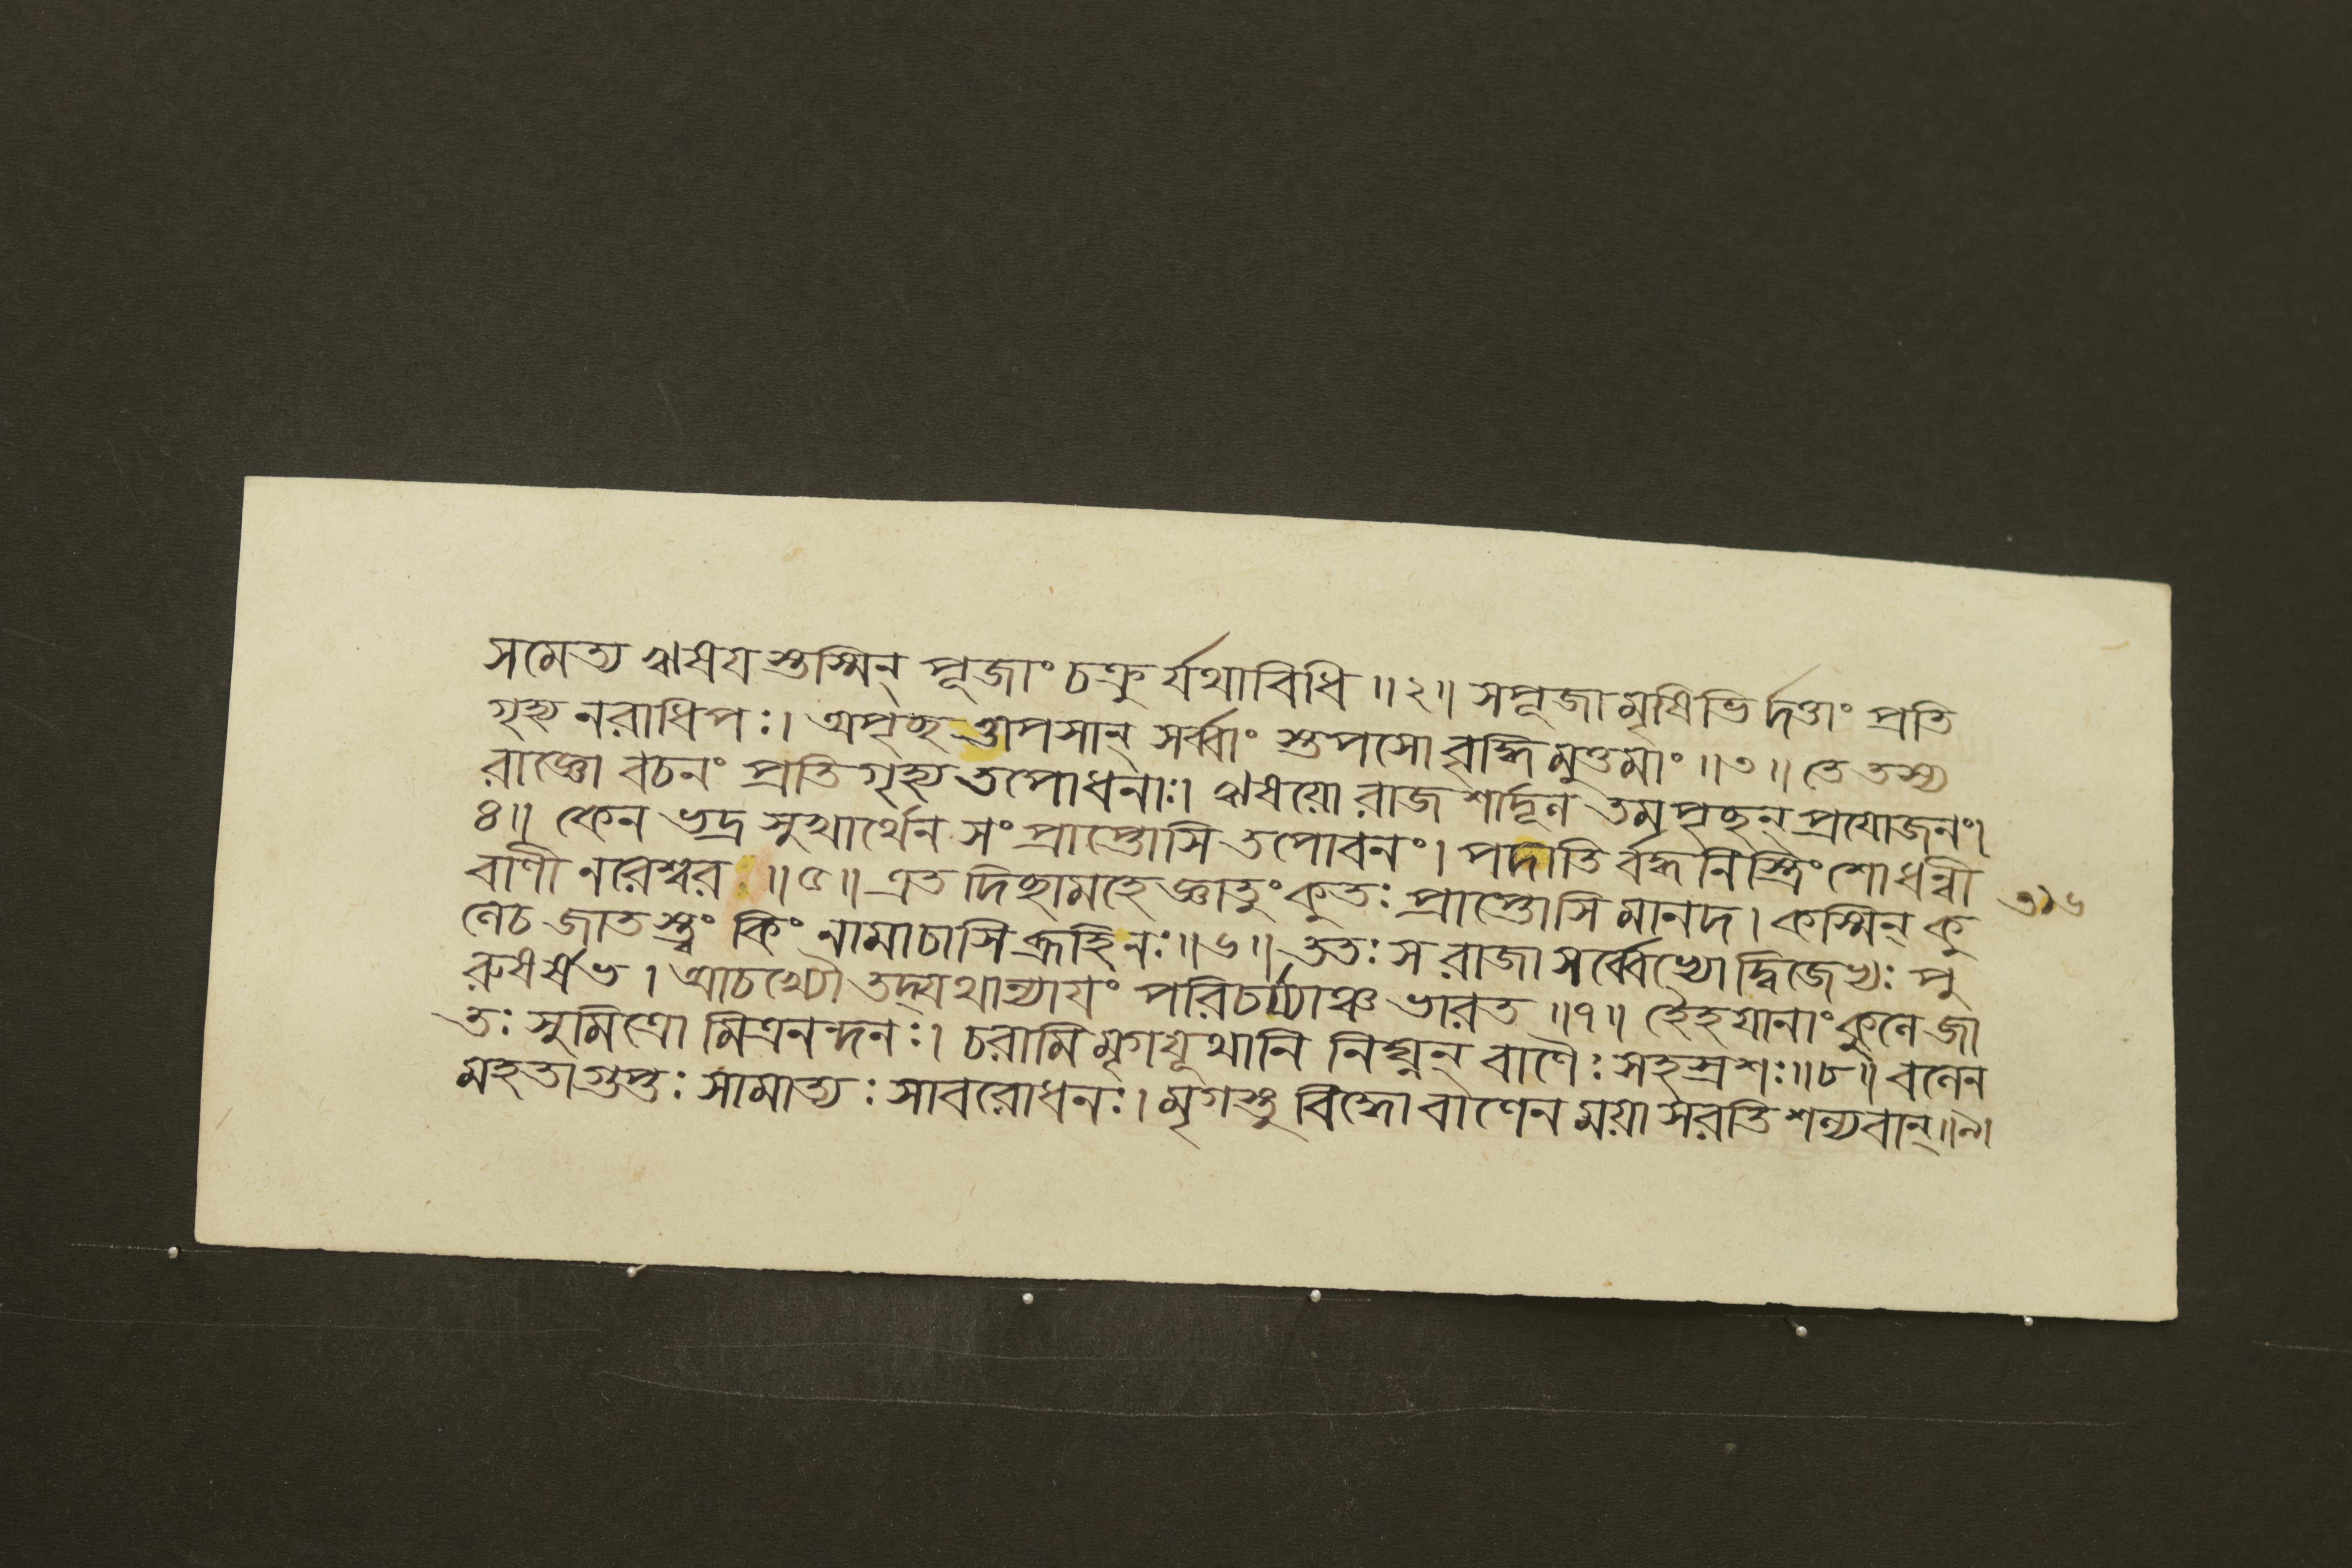 সমেত্য ঋষয়স্তস্মিন্ পূজাং চক্রুর্যথাবিধি ॥২॥ সপূজামৃষিভির্দত্তাং প্রতি
গৃহ্য নরাধিপঃ। অপৃচ্ছত্তাপসান্ সর্ব্বাং স্তপসো বৃদ্ধিমুত্তমাং ॥৩॥ তে তস্য
রাজ্ঞো বচনং প্রতিগৃহ্য তপোধনাঃ। ঋষয়ো রাজশার্দূল তমপৃচ্ছন্ প্রযোজনং।
৪॥ কেন ভদ্র সুখার্থেন সংপ্রাপ্তোসি তপোবনং। পদাতির্ব্বদ্ধনিস্ত্রিংশোধন্বী
বাণী নরেশ্বর ॥৫॥ এতদিচ্ছামহে জ্ঞাতুং কুতঃ প্রাপ্তোসি মানদ। কস্মিন্ কু
লেচ জাতস্ত্বং কিং নামাচাসি ব্রূহি নঃ॥৬॥ ততঃ স রাজা সর্ব্বেভ্যো দ্বিজেভ্যঃ পু
রুষর্ষভ। আচখ্যৌ তদ্যথান্যাযং পরিচর্য্যাঞ্চ ভারত ॥৭॥ হৈহযানাং কুলে জা
তঃ সুমিত্রো মিত্রনন্দনঃ। চরামি মৃগযূথানি নিঘ্নন্ বাণৈঃ সহস্রশঃ॥৮॥ বলেন
মহতা গুপ্তঃ সামাত্যঃ সাবরোধনঃ। মৃগস্তু বিদ্ধো বাণেন ময়া সরতি শল্যবান্॥৯।
৩১৬